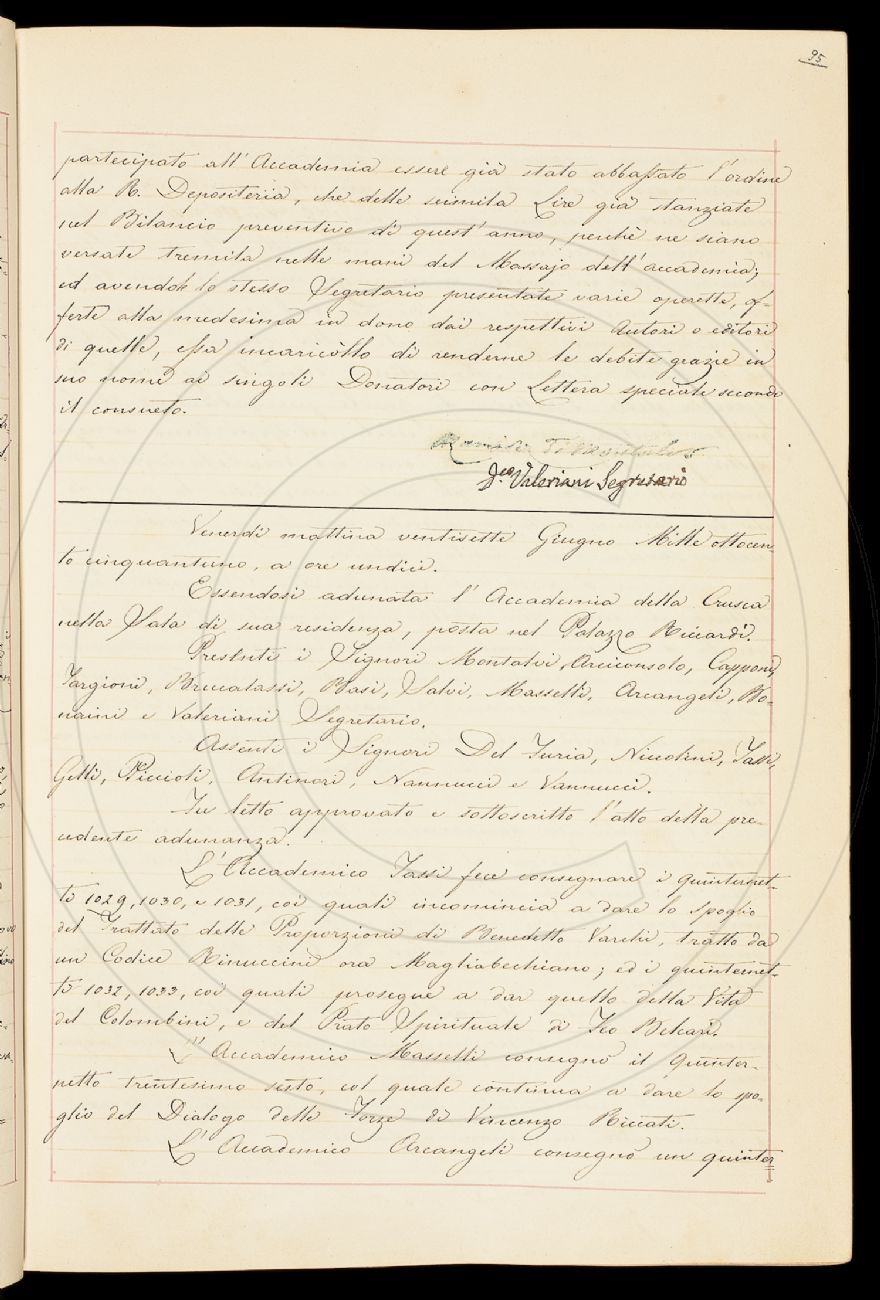 95
partecipato all' Accademia essere già stato abbassato l'ordine
alla R. Depositeria, che delle seimila Lire già stanziate
nel Bilancio preventivo di quest' anno, perchè ne siano
versate tremila nelle mani del Massajo dell'accademia;
ed avendole lo stesso Segretario presentate varie operette, of-
ferte alla medesima in dono dai respettivi Autori o editori
di quelle, essa incaricollo di renderne le debite grazie in
suo nome ai singoli Donatori con Lettera speciale secondo
il consueto.
Valeriani Segretario
Venerdì mattina ventisette Giugno Mille ottocen
to cinquantuno, a ore undici.
Essendosi adunata l' Accademia della Crusca
nella Sala di sua residenza, posta nel Palazzo Riccardi.
Presenti i Signori Montalvi, Arciconsolo, Capponi,
Targioni, Brucalassi, Basi, Salvi, Masselli, Arcangeli, Bo-
naini e Valeriani Segretario.
Assenti i Signori Del Furia, Niccolini, Tassi,
Gelli, Piccioli, Antinori, Nannucci e Vannucci.
Fu letto approvato e sottoscritto l'atto della pre-
cedente adunanza.
L' Accademico Tassi fece consegnare i quinternet-
ti 1029, 1030, e 1031, coi quali incomincia a dare lo spoglio
del Trattato delle Proporzioni di Benedetto Varchi, tratto da
un Codice Rinuccini ora Magliabechiano; ed i quinternet-
ti 1032, 1033, coi quali prosegue a dar quello della Vita
del Colombini, e del Prato Spirituale di Feo Belcari.
L' Accademico Masselli consegnò il quinter-
netto trentesimo sesto, col quale continua a dare lo spo-
glio del Dialogo delle Forze di Vincenzo Riccati.
L' Accademico Arcangeli consegnò un quinter